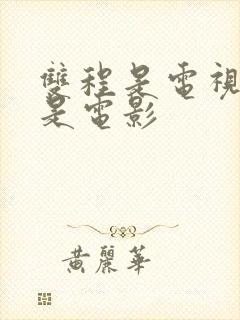 雙程是電視
是電影
黃麗華